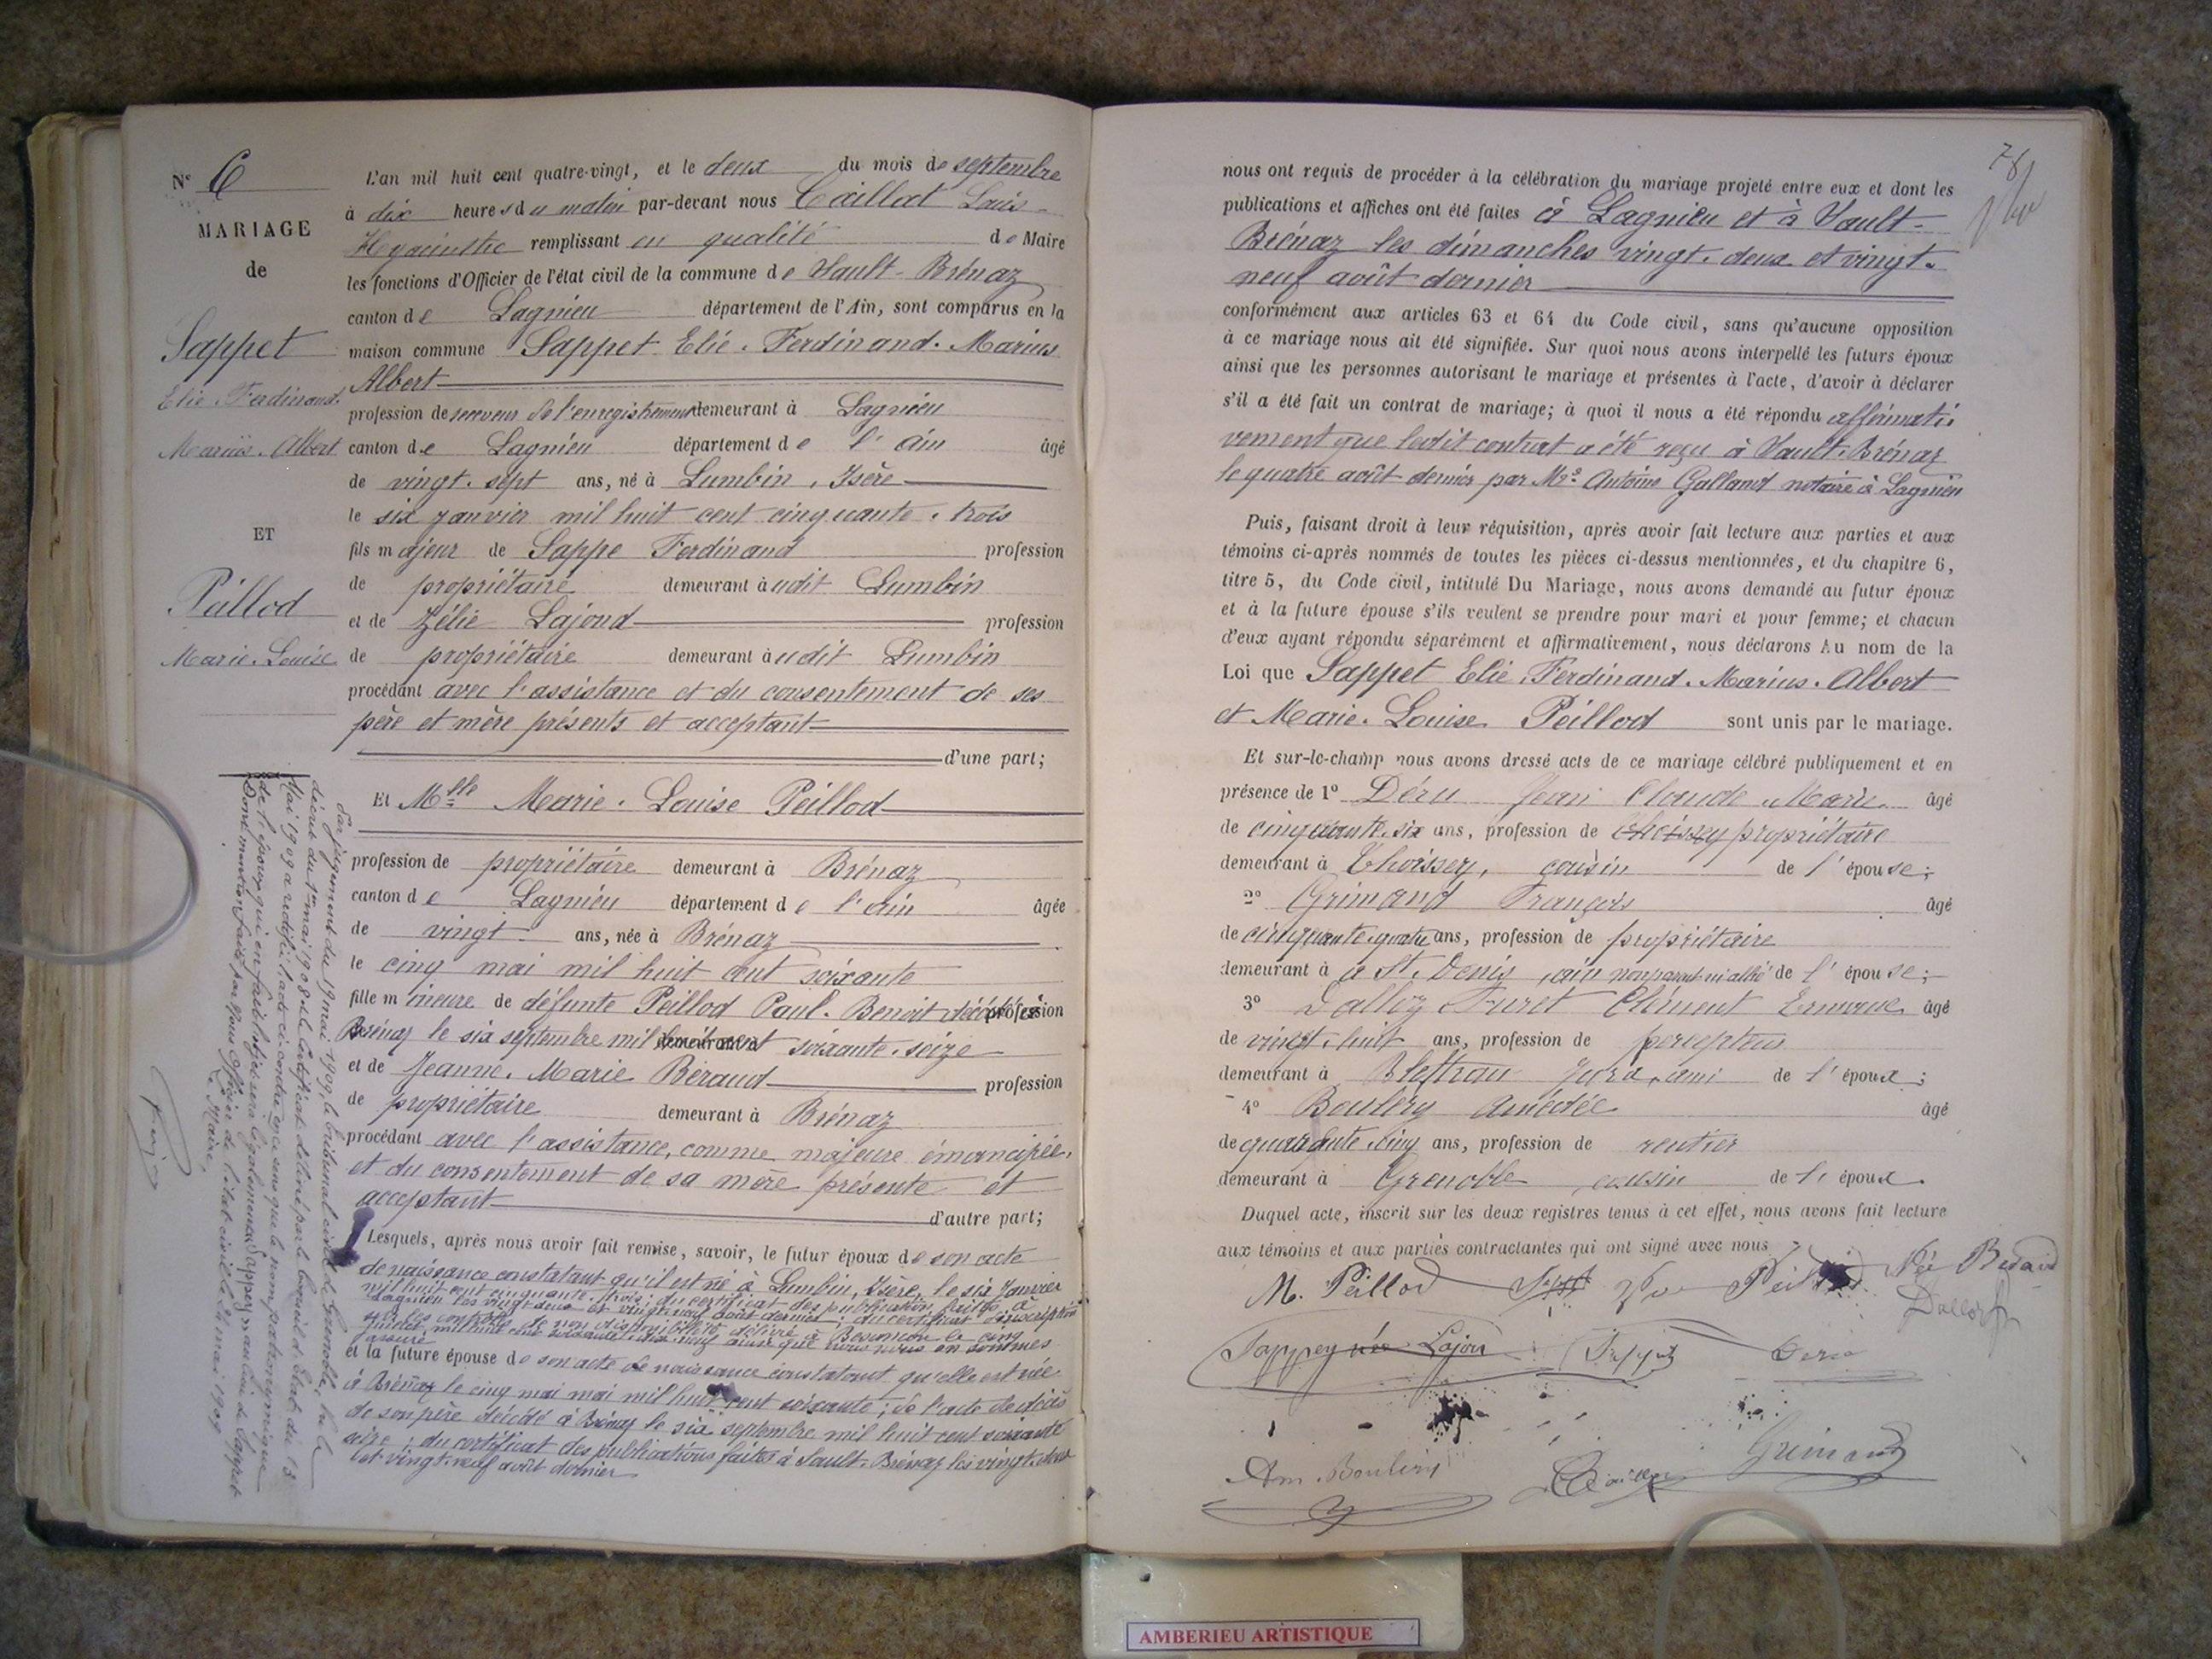 N° 6
MARIAGE
de
Sappet
Elie. Ferdinand.
Marius. Albert
ET
Peillod
Marie. Louise
L'an mil huit cent quatre-vingt, et le deux du mois de septembre
à dix heures du matin par-devant nous Caillod Louis
Hyacinthe remplissant en qualité de Maire
les fonctions d'Officier de l'état civil de la commune de Sault-Brénaz
canton de Lagnieu département de l'Ain, sont comparus en la
maison commune Sappet Elie. Ferdinand. Marius
Albert
profession de receveur de l'enregistrement demeurant à Lagnieu
canton de Lagnieu département de l'ain âgé
de vingt. sept ans, né à Lumbin, Isère
le six janvier mil huit cent cinquante. trois
fils majeur de Sappe Ferdinand profession
de propriétaire demeurant àudit Lumbin
et de Zélie Lajond profession
de propriétaire demeurant àudit Lumbin
procédant avec l'assistance et du consentement de ses
père et mère présents et acceptant
d'une part;
Et Mlle Marie. Louise Peillod
profession de propriétaire demeurant à Brénaz
canton de Lagnieu département de l'ain âgée
de vingt ans, née à Brénaz
le cinq mai mil huit cent soixante
fille mineure de défunte Peillod Paul. Benoit décédé à profession
Brénaz le six septembre mil huit cent demeurant à soixante. seize
et de Jeanne. Marie Béraud profession
de propriétaire demeurant à Brénaz
procédant avec l'assistance, comme majeure émancipée,
et du consentement de sa mère présente et
acceptant
d'autre part;
Lesquels, après nous avoir fait remise, savoir, le futur époux de son acte
de naissance constatant qu'il est né à Lumbin, Isère, le six janvier
mil huit cent cinquante. trois; du certificat des publications faites à
Lagnieu les vingt deux et vingt neuf août dernier; du certificat d'inscription
sur les contrôles de non disponibilité délivré à Besançon le cinq
juillet mil huit cent soixante. dix. neuf ainsi que nous nous en sommes
assuré
et la future épouse de son acte de naissance constatant qu'elle est née
à Brénaz le cinq mai mai mil huit cent soixante; de l'acte de décès
de son père décédé à Brénaz le six septembre mil huit cent soixante
seize; du certificat des publications faites à Sault-Brénaz les vingt. deux
et vingt neuf août dernier
Par jugement du 19 mai 1909, le tribunal civil de Grenoble, vu le
décret du 1er mai 1908 et le certificat délivré par le Conseil d'Etat du 13
Mai 1909 a rectifié l'acte ci-contre en ce sens que le nom patronymique
de l'époux qui en fait l'objet sera légalement Sappey au lieu de Sappet
Dont mention faite par Nous Officier de l'état civil le 28 mai 1909
Le Maire,
78
nous ont requis de procéder à la célébration du mariage projeté entre eux et dont les
publications et affiches ont été faites à Lagnieu et à Sault-
Brénaz les dimanches vingt. deux et vingt.
neuf août dernier
conformément aux articles 63 et 64 du Code civil, sans qu'aucune opposition
à ce mariage nous ait été signifiée. Sur quoi nous avons interpellé les futurs époux
ainsi que les personnes autorisant le mariage et présentes à l'acte, d'avoir à déclarer
s'il a été fait un contrat de mariage; à quoi il nous a été répondu affirmati.
vement que ledit contrat a été reçu à Sault-Brénaz
le quatre août dernier par Me Antoine Galland notaire à Lagnieu
Puis, faisant droit à leur réquisition, après avoir fait lecture aux parties et aux
témoins ci-après nommés de toutes les pièces ci-dessus mentionnées, et du chapitre 6,
titre 5, du Code civil, intitulé Du Mariage, nous avons demandé au futur époux
et à la future épouse s'ils veulent se prendre pour mari et pour femme; et chacun
d'eux ayant répondu séparément et affirmativement, nous déclarons Au nom de la
Loi que Sappet Elie. Ferdinand. Marius. Albert
et Marie. Louise Peillod sont unis par le mariage.
Et sur-le-champ nous avons dressé acte de ce mariage célébré publiquement et en
présence de 1° Déru Jean Claude Marie âgé
de cinquante. six ans, profession de Choissey propriétaire
demeurant à Thoissey, cousin de l'épouse;
2° Grimand François âgé
de cinquante. quatre ans, profession de propriétaire
demeurant à à St. Denis, ain non parent ni allié de l'épouse;
3° Dalloz Furet Clément Ernest âgé
de vingt. huit ans, profession de percepteur
demeurant à Jura, ami de l'époux;
4° Bouléry Amédée âgé
de quarante. cinq ans, profession de rentier
demeurant à Grenoble, cousin de l'époux.
Duquel acte, inscrit sur les deux registres tenus à cet effet, nous avons fait lecture
aux témoins et aux parties contractantes qui ont signé avec nous
M. Peillod Vve Peillod Née Béraud
Dalloz
Sappey née Lajon Sappey Deru
Am Bouléry Caillod Grimand
AMBERIEU ARTISTIQUE